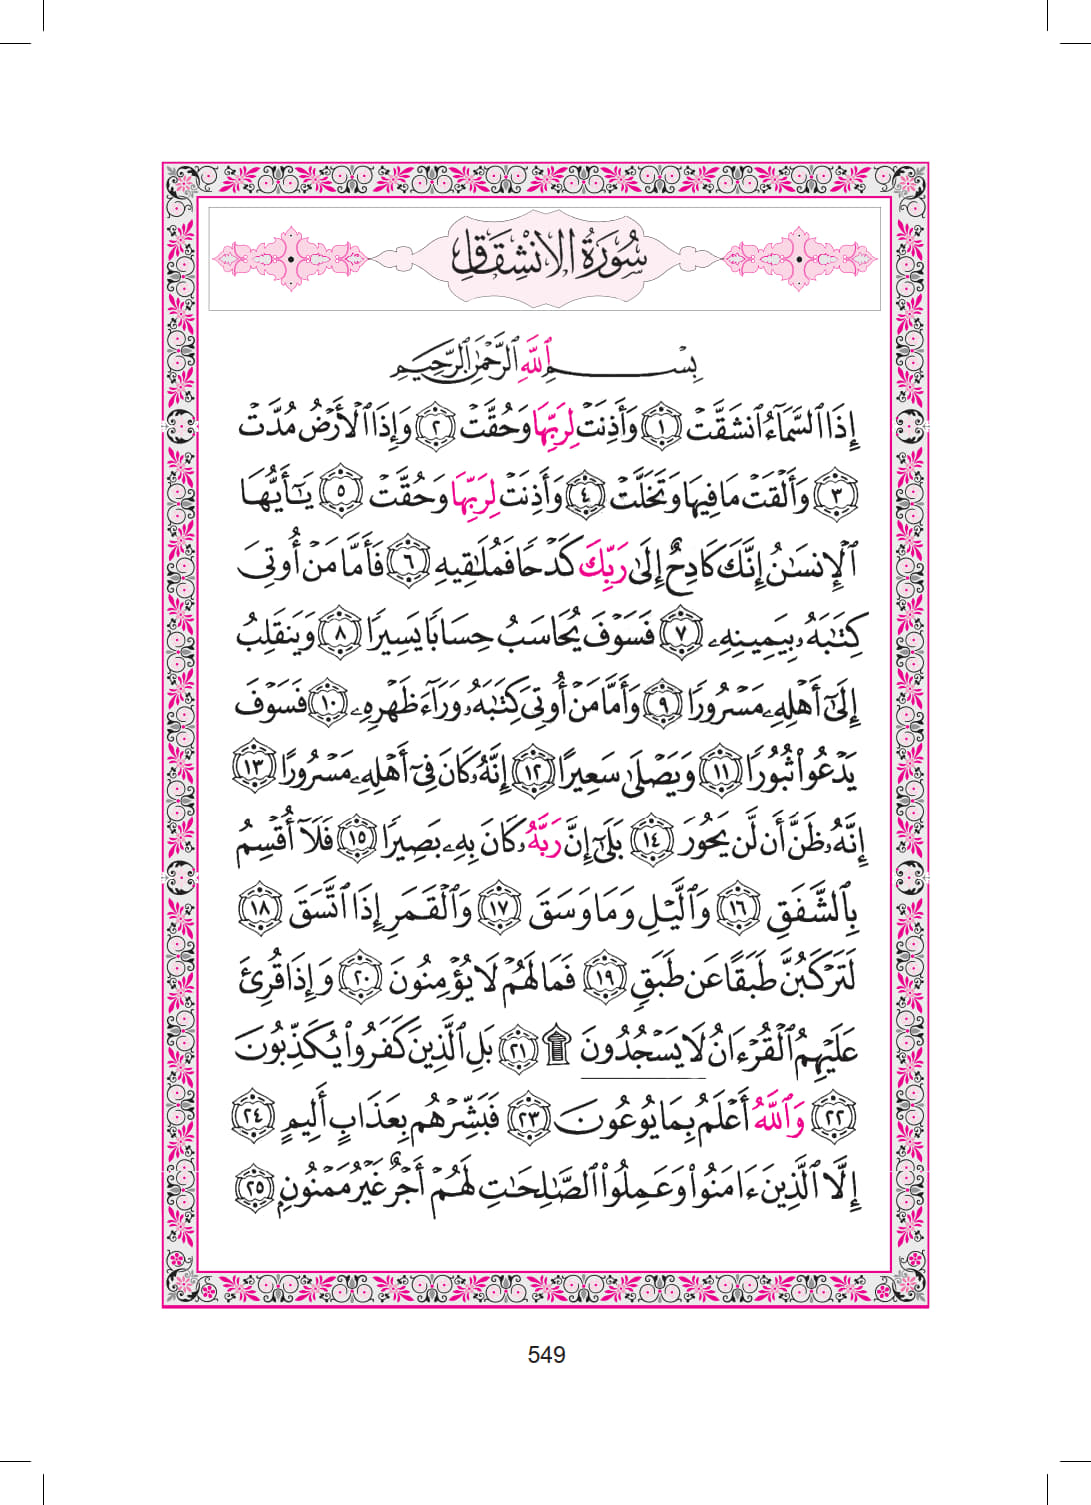 سُورَةُ الِانْشِقَاقِ
بِسْمِ ٱللَّهِ ٱلرَّحْمَٰنِ ٱلرَّحِيمِ
إِذَا ٱلسَّمَآءُ ٱنشَقَّتْ ۝١ وَأَذِنَتْ لِرَبِّهَا وَحُقَّتْ ۝٢ وَإِذَا ٱلْأَرْضُ مُدَّتْ
۝٣ وَأَلْقَتْ مَا فِيهَا وَتَخَلَّتْ ۝٤ وَأَذِنَتْ لِرَبِّهَا وَحُقَّتْ ۝٥ يَٰٓأَيُّهَا
ٱلْإِنسَٰنُ إِنَّكَ كَادِحٌ إِلَىٰ رَبِّكَ كَدْحًا فَمُلَٰقِيهِ ۝٦ فَأَمَّا مَنْ أُوتِىَ
كِتَٰبَهُۥ بِيَمِينِهِۦ ۝٧ فَسَوْفَ يُحَاسَبُ حِسَابًا يَسِيرًا ۝٨ وَيَنقَلِبُ
إِلَىٰٓ أَهْلِهِۦ مَسْرُورًا ۝٩ وَأَمَّا مَنْ أُوتِىَ كِتَٰبَهُۥ وَرَآءَ ظَهْرِهِۦ ۝١٠ فَسَوْفَ
يَدْعُوا۟ ثُبُورًا ۝١١ وَيَصْلَىٰ سَعِيرًا ۝١٢ إِنَّهُۥ كَانَ فِىٓ أَهْلِهِۦ مَسْرُورًا ۝١٣
إِنَّهُۥ ظَنَّ أَن لَّن يَحُورَ ۝١٤ بَلَىٰٓ إِنَّ رَبَّهُۥ كَانَ بِهِۦ بَصِيرًا ۝١٥ فَلَآ أُقْسِمُ
بِٱلشَّفَقِ ۝١٦ وَٱلَّيْلِ وَمَا وَسَقَ ۝١٧ وَٱلْقَمَرِ إِذَا ٱتَّسَقَ ۝١٨
لَتَرْكَبُنَّ طَبَقًا عَن طَبَقٍ ۝١٩ فَمَا لَهُمْ لَا يُؤْمِنُونَ ۝٢٠ وَإِذَا قُرِئَ
عَلَيْهِمُ ٱلْقُرْءَانُ لَا يَسْجُدُونَ ۩ ۝٢١ بَلِ ٱلَّذِينَ كَفَرُوا۟ يُكَذِّبُونَ
۝٢٢ وَٱللَّهُ أَعْلَمُ بِمَا يُوعُونَ ۝٢٣ فَبَشِّرْهُم بِعَذَابٍ أَلِيمٍ ۝٢٤
إِلَّا ٱلَّذِينَ ءَامَنُوا۟ وَعَمِلُوا۟ ٱلصَّٰلِحَٰتِ لَهُمْ أَجْرٌ غَيْرُ مَمْنُونٍۭ ۝٢٥
549